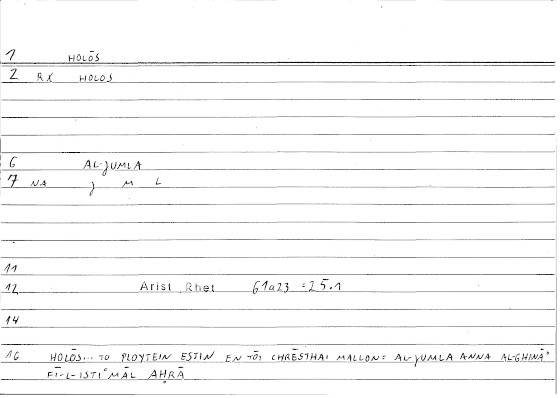 1 HOLŌS
2 RX HOLOS
6 AL-JUMLA
7 NA J M L
11
12 Arist Rhet 61a23 = 25.1
14
16 HOLŌS... TO PLOYTEIN ESTIN EN TŌI CHRĒSTHAI MALLON: AL-JUMLA ANNA AL-GHINĀʾ
FĪ-L-ISTIʿMĀL AḤRĀ